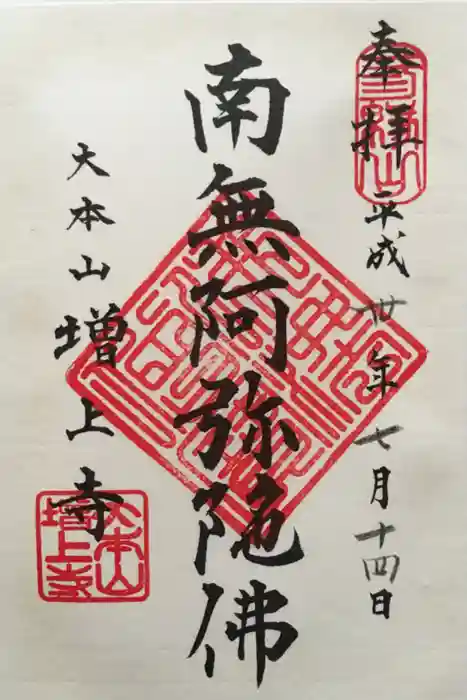 奉拝
平成卅年七月十四日
南無阿弥陀佛
大本山増上寺
大本山増上寺